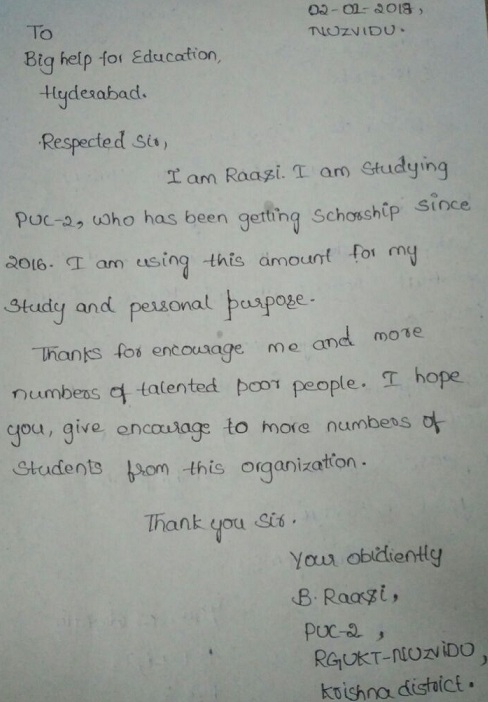 02-02-2018,
To
NUZVIDU.
Big help for Education,
Hyderabad.
Respected Sir,
I am Raazi. I am Studying
PUC-2, who has been getting Schorship since
2016. I am using this amount for my
Study and personal purpose.
Thanks for encourage me and more
numbers of talented poor people. I hope
you, give encourage to more numbers of
Students from this organization.
Thank you Sir.
Your obidiently
B. Raazi,
PUC-2,
RGUKT-NUZVIDU,
Krishna district.